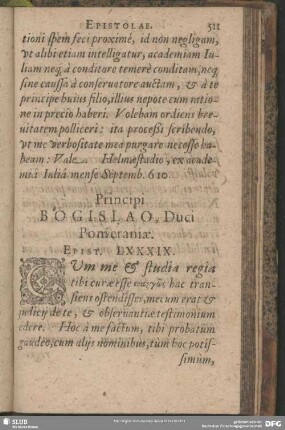 EPISTOLAE. 511
tioni spem feci proximè, id non negligam,
vt alibi etiam intelligatur, academiam Iu-
liam neq̀ à conditore temerè conditam, neq̀
sine caussa à conseruatore auctam, & à te
principe huius filio, illius nepote cum ratio-
ne in precio haberi. Volebam ordiens bre-
uitatem polliceri: ita processi scribendo,
vt me verbositate mea purgare necesse ha-
beam: Vale. Helmæstadio, ex acade-
miâ Iuliâ mense Septemb. 610
Principi
BOGISLAO, Duci
Pomeraniæ.
EPIST. LXXXIX.
CVm me & studia regia
tibi curæ esse hac tran-
siens ostendisses, mei um erat &
judicij de te, & obseruantiæ testimonium
edere. Hoc à me factum, tibi probatum
gaudeo, cum alijs nominibus, tùm hoc potis-
simùm,
SLUB
DFG